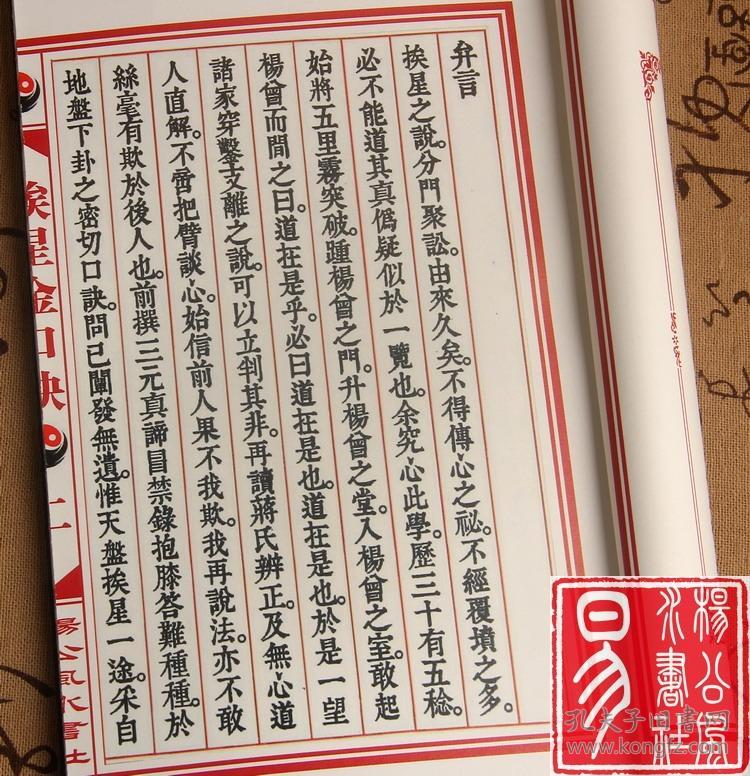 弁言
挨星之說。分門聚訟。由來久矣。不得傳心之祕。不經覆墳之多。
必不能道其真僞疑似於一覽也。余究心此學。歷三十有五稔。
始將五里霧突破。踵楊曾之門。升楊曾之堂。入楊曾之室。敢起
楊曾而問之曰。道在是乎。必曰道在是也。道在是也。於是一望
諸家穿鑿支離之說。可以立判其非。再讀蔣氏辨正。及無心道
人直解。不啻把臂談心。始信前人果不我欺。我再說法。亦不敢
絲毫有欺於後人也。前撰三元真諦冒禁錄抱膝答難種種。於
地盤下卦之密切口訣。問已闡發無遺。惟天盤挨星一途。采自
挨星金口訣
二
楊公風水書社
楊公風水書社
易
孔夫子旧書网
www.kongfz.com